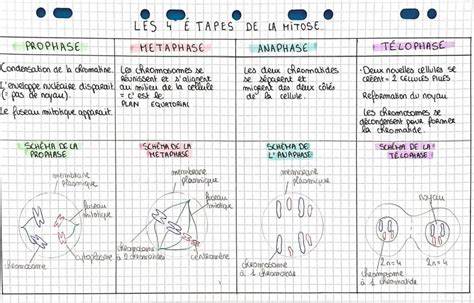 LES 4 ÉTAPES DE LA MITOSE
PROPHASE
Condensation de la chromatine.
L'enveloppe nucléaire disparait
(= pas de noyau).
Le fuseau mitotique apparait.
SCHÉMA DE LA
PROPHASE
membrane
plasmique
fuseau
mitotique
chromosome
cytoplasme
METAPHASE
Les chromosomes se
réunissent et s'alignent
au milieu de la cellule
= c'est le
PLAN EQUATORIAL
SCHÉMA DE LA
METAPHASE
membrane
plasmique
fuseau
mitotique
chromosome
à 2 chromatides
centromère
ANAPHASE
Les deux chromatides
se séparent et
migrent des deux côtés
de la cellule.
SCHÉMA DE
L'ANAPHASE
membrane
plasmique
chromosome
à 1 chromatide
TÉLOPHASE
Deux nouvelles cellules se
créent = 2 cellules filles
Reformation du noyau
Les chromosomes se
décondensent pour former
la chromatide.
SCHÉMA DE LA
TÉLOPHASE
noyau
2n=4
2n=4
chromosome
à 1 chromatide